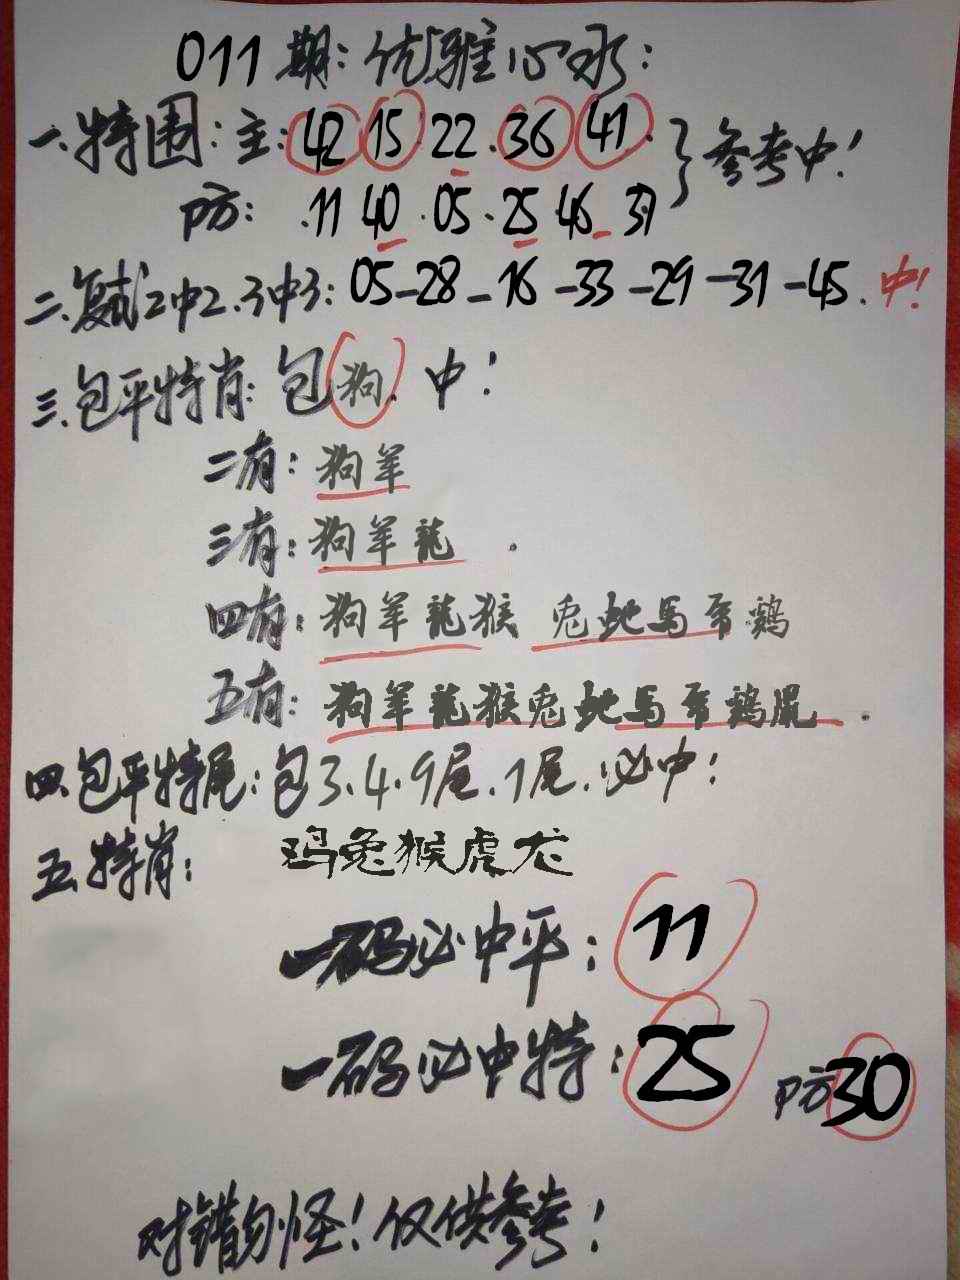 011期:优雅心水:
一.特围:主:42 15 22.36 41.
防: .11 40.05.25 46 31
参考中!
二.复式2中2.3中3:05-28-16-33-29-31-45.中!
三.包平特肖:包狗.中!
二有:狗羊
三有:狗羊龍.
四有:狗羊龍猴 兔虵馬帝鷄
五有:狗羊龍猴兔虵馬帝鷄鼠.
四.包平特尾:包3.4.9尾.1尾.必中!
五.特肖: 鸡兔猴虎龙
一码必中平:11
一码必中特:25 防30
对错勿怪!仅供参考!